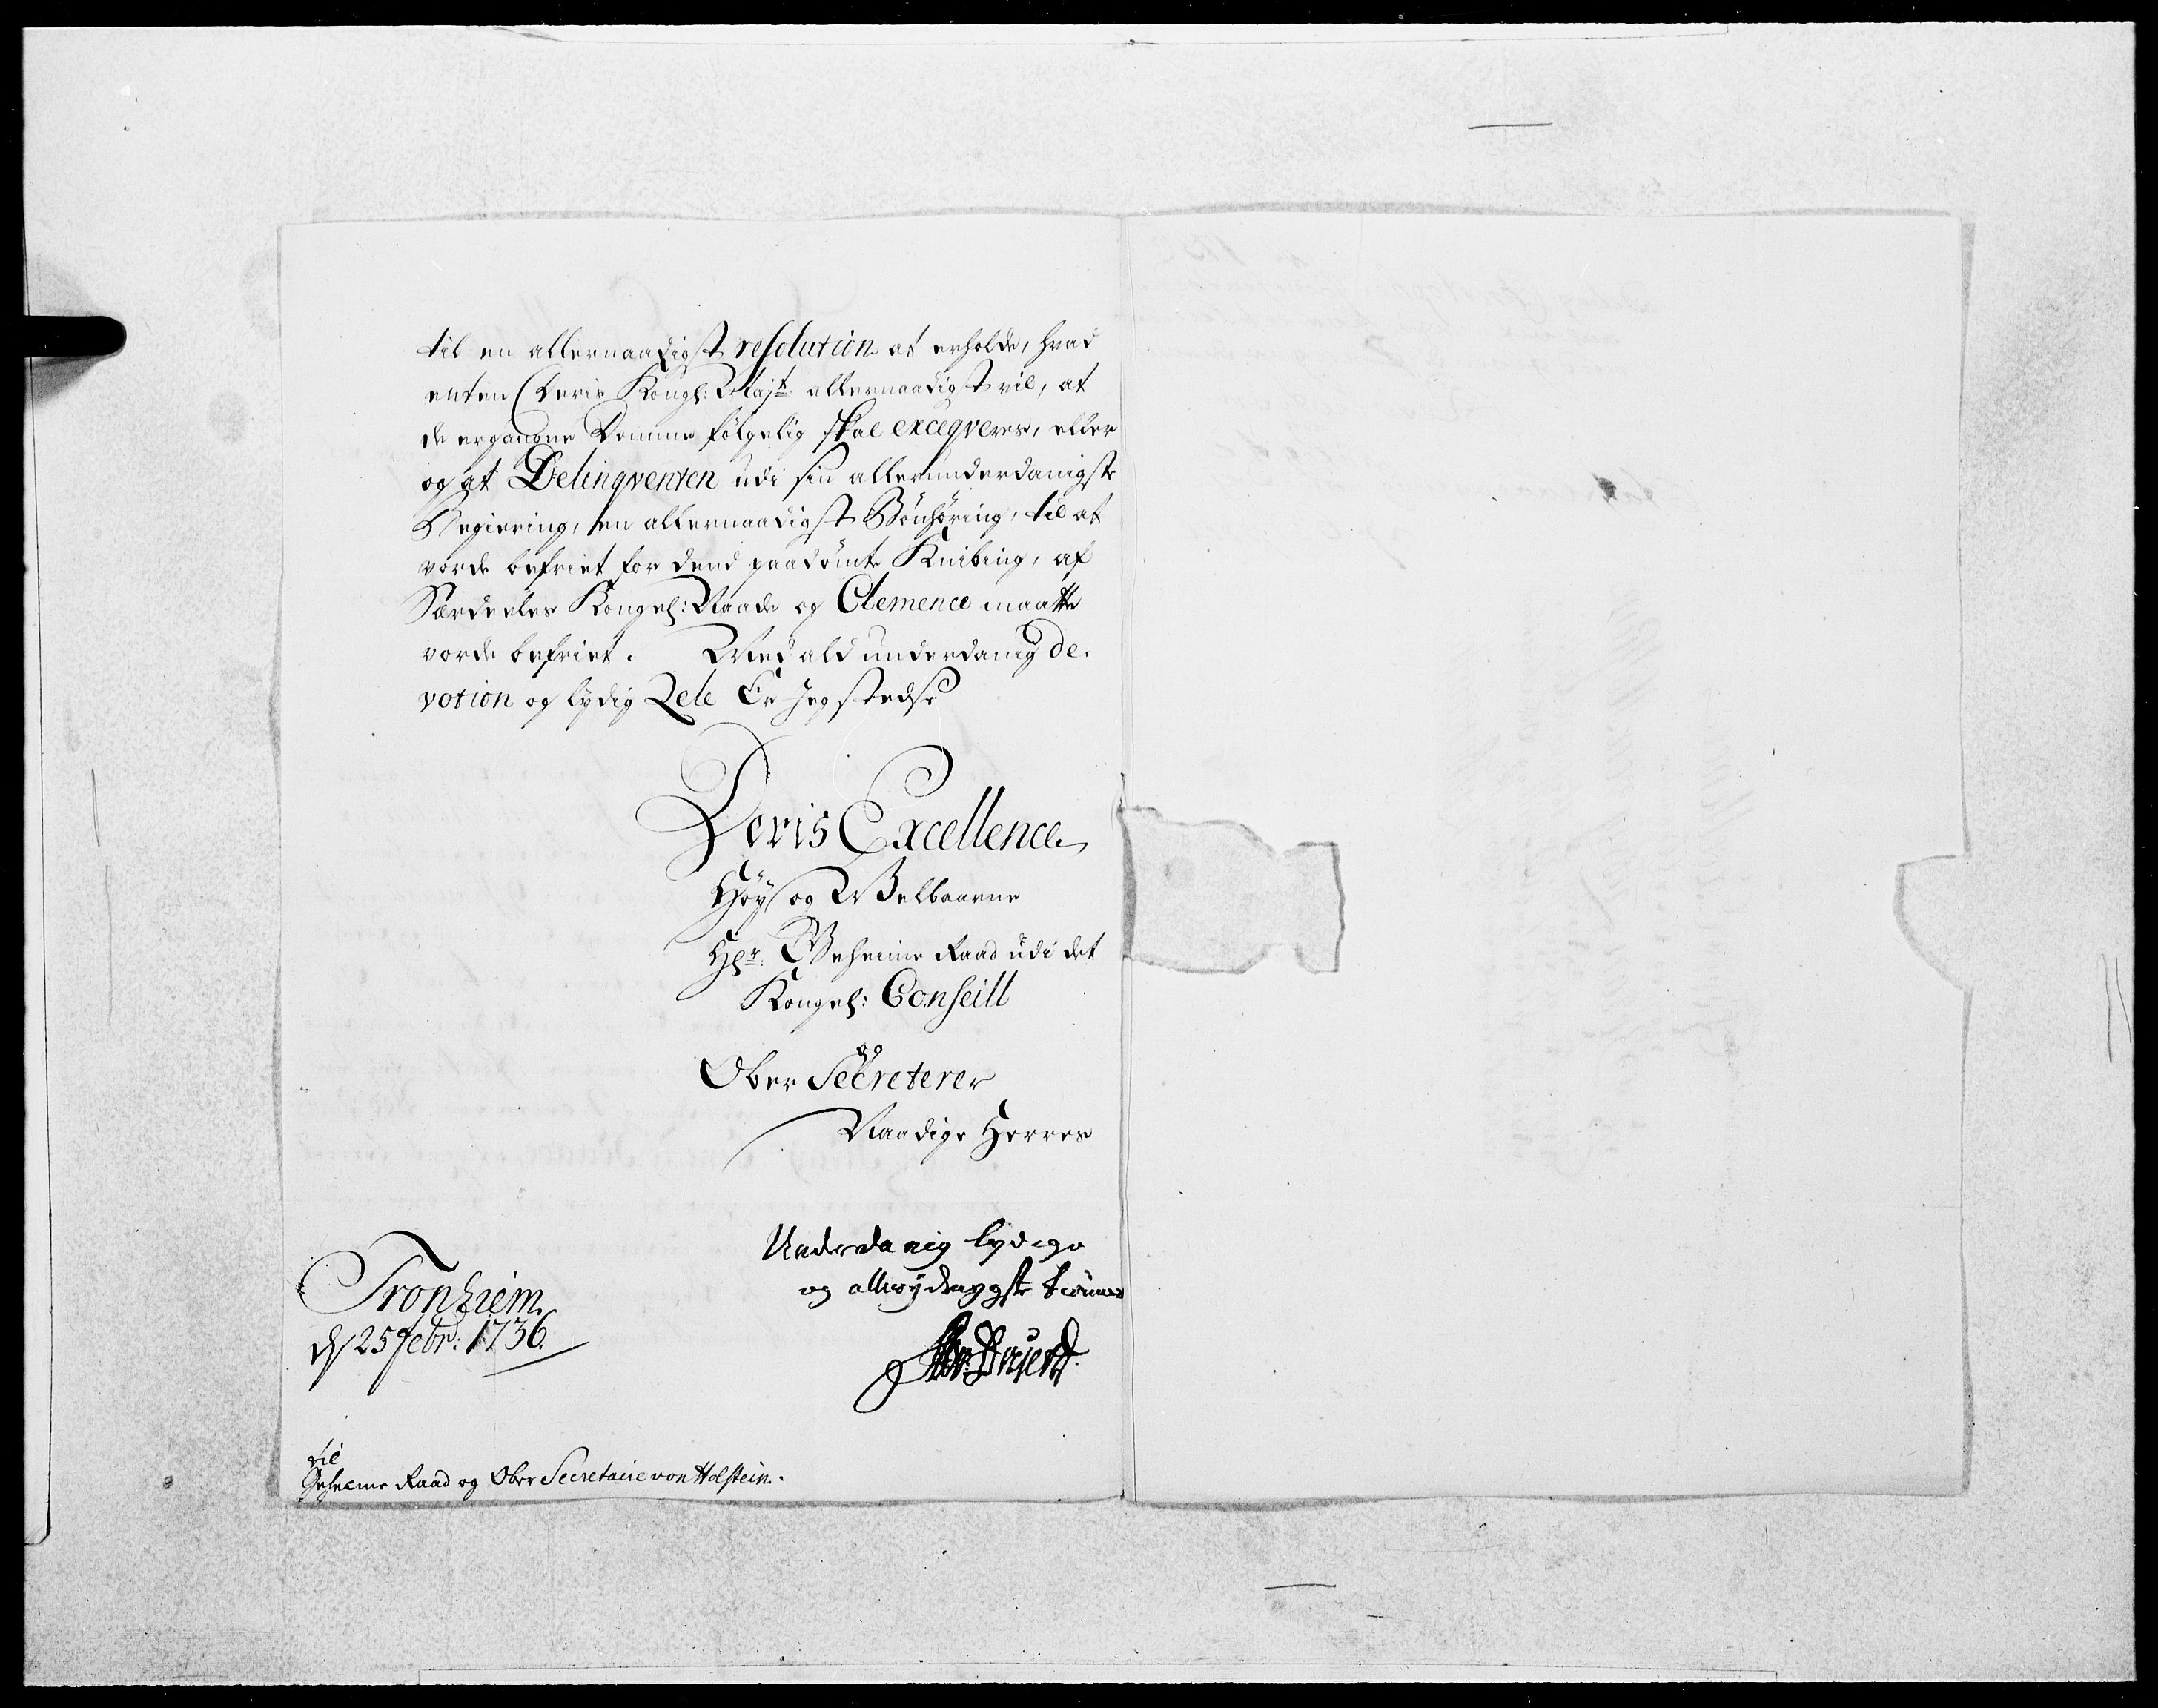 til en allernaadigst resolution at erholde, hvad
enten Deris Kongl: Majt allernaadigst vil, at
de ergangne Domme følgelig skal exceqveres, eller
og at Delinqventen udi sin allerunderdanigste
begiering, en allernaadigst Bønhøring, til at
vorde befriet for dend paadømte Knibing, af
Særdeeles Kongel: Naade og Clemence maatte
vorde befriet. Med ald underdanig de-
votion og lydig Zele Er Jeg stedse
Deris Excellence
Høy og Velbaarne
Hr: Geheime Raad udi det
Kongel: Conseill
og
Ober Secreterer
Naadige Herres
Underdanig lydige
og allerydmygste tienner
Tronhiem
d 25 Febr: 1736.
til
Geheime Raad og Ober Secretaire von Holstein.